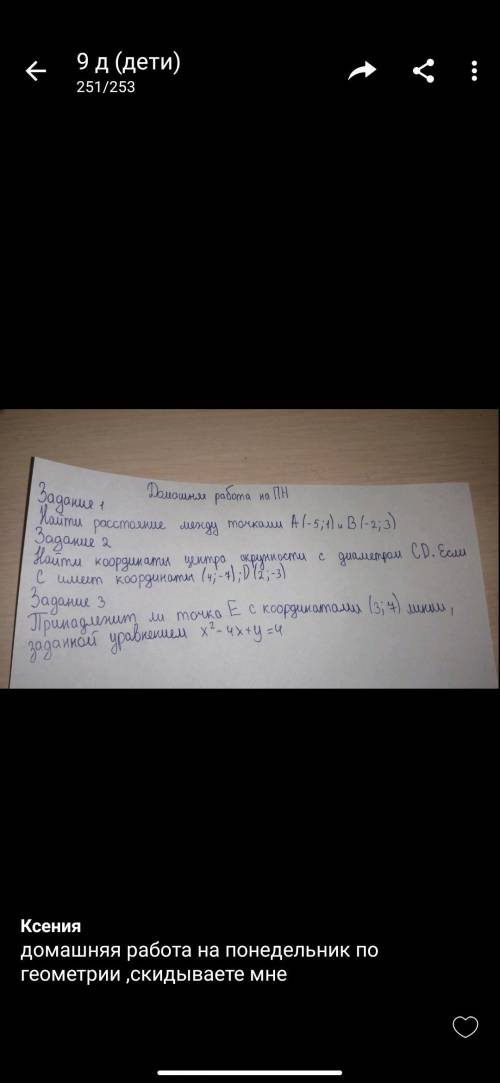 9 д (дети)
251/253
Домашняя работа на ПН
Задание 1
Найти расстояние между точками A(-5;1) и B(-2;3)
Задание 2
Найти координаты центра окружности с диаметром CD. Если
C имеет координаты (4;-7); D(2;-3)
Задание 3
Принадлежит ли точка E с координатами (3;7) линии,
заданной уравнением x²-4x+y=4
Ксения
домашняя работа на понедельник по
геометрии ,скидываете мне